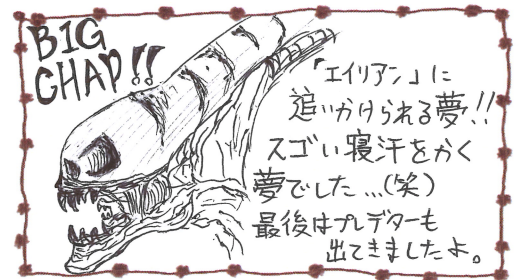 BIG
CHAP!!
「エイリアン」に
追いかけられる夢!!
スゴい寝汗をかく
夢でした…(笑)
最後はプレデターも
出てきましたよ。